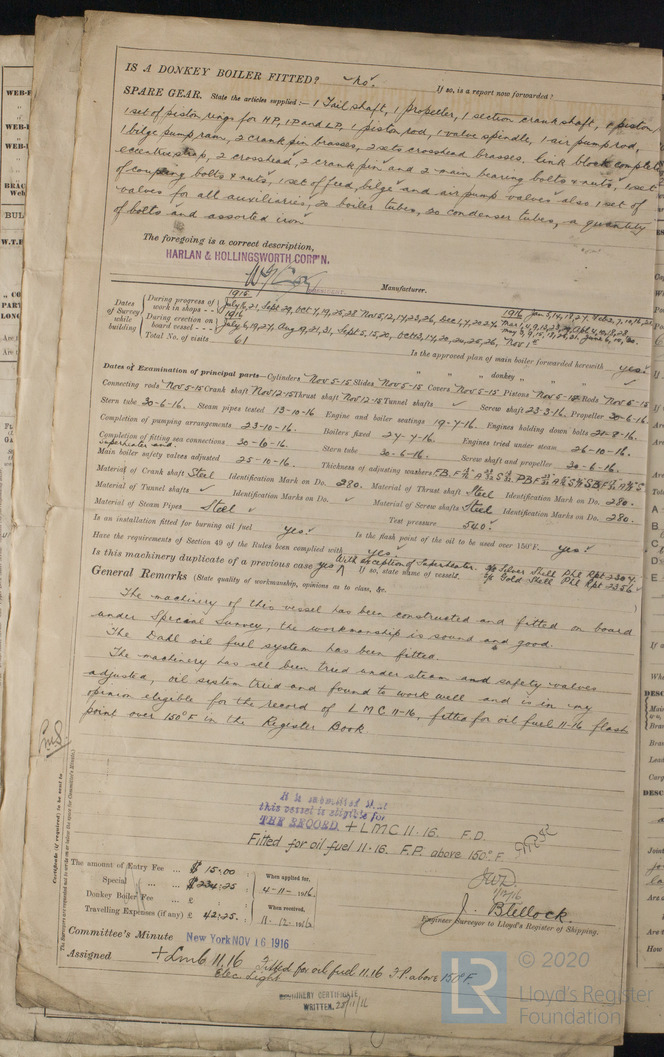 IS A DONKEY BOILER FITTED? No. If so, is a report now forwarded?
SPARE GEAR. State the articles supplied:— 1 Tail shaft, 1 propeller, 1 section crank shaft, 1 piston
1 set of piston rings for H.P, I.P and L.P, 1 piston rod, 1 valve spindle, 1 air pump rod,
1 bilge pump ram, 2 crank pin brasses, 2 sets crosshead brasses. link block complete
eccentric strap, 2 crosshead, 2 crank pin and 2 main bearing bolts & nuts, 1 set
of coupling bolts & nuts, 1 set of feed, bilge and air pump valves also 1 set of
valves for all auxiliaries, 20 boiler tubes, 20 condenser tubes, a quantity
of bolts and assorted iron
The foregoing is a correct description,
HARLAN & HOLLINGSWORTH CORP'N.
Manufacturer.
Dates of Survey while building
During progress of work in shops - - 1915 July 6, 21, Sept 29, Oct 7, 19, 25, 28 Nov 5, 12, 17, 23, 26, Dec 1, 7, 20, 27, 1916
During erection on board vessel - - - 1916 July 6, 19, 27, Aug 9, 21, 31, Sept 5, 15, 20, Nov 1st
Total No. of visits 61
Is the approved plan of main boiler forwarded herewith yes
" " " donkey " " "
Dates of Examination of principal parts—Cylinders Nov 5-15 Slides Nov 5-15 Covers Nov 5-15 Pistons Nov 5-15 Rods Nov 5-15
Connecting rods Nov 5-15 Crank shaft Nov 12-15 Thrust shaft Nov 12-15 Tunnel shafts Screw shaft 23-3-16. Propeller 20-6-16.
Stern tube 20-6-16. Steam pipes tested 13-10-16 Engine and boiler seatings 19-7-16. Engines holding down bolts 21-9-16.
Completion of pumping arrangements 23-10-16. Boilers fixed 27-7-16. Engines tried under steam 26-10-16.
Completion of fitting sea connections 20-6-16. Stern tube 20-6-16. Screw shaft and propeller 20-6-16.
Superheater and
Main boiler safety valves adjusted 25-10-16. Thickness of adjusting washers
Material of Crank shaft Steel Identification Mark on Do. 280. Material of Thrust shaft Steel Identification Mark on Do. 280.
Material of Tunnel shafts Identification Marks on Do. Material of Screw shafts Steel Identification Marks on Do. 280.
Material of Steam Pipes Steel Test pressure 540.
Is an installation fitted for burning oil fuel yes. Is the flash point of the oil to be used over 150°F. yes
Have the requirements of Section 49 of the Rules been complied with yes.
Is this machinery duplicate of a previous case yes with exception of Superheater. If so, state name of vessel. S/S Silver Shell Phl Rpt 2304.
S/S Gold Shell Phl Rpt 2356
General Remarks (State quality of workmanship, opinions as to class, &c.
The machinery of this vessel has been constructed and fitted on board
under Special Survey, the workmanship is sound and good.
The Dahl oil fuel system has been fitted.
The machinery has all been tried under steam and safety valves
adjusted, oil sistem tried and found to work well and is in my
opinion eligible for the record of L M C 11-16, fitted for oil fuel 11-16 flash
point over 150°F in the Register Book.
It is submitted that
this vessel is eligible for
THE RECORD. + L.M.C. 11.16. F.D.
Fitted for oil fuel 11.16. F.P. above 150°F.
The amount of Entry Fee ... $ 15.00 When applied for,
Special ... $ 234.25 4-11-1916.
Donkey Boiler Fee ... £ When received,
Travelling Expenses (if any) £ 42.25. 11-12-1916
J. Blellock.
Engineer Surveyor to Lloyd's Register of Shipping.
Committee's Minute New York NOV 16 1916
Assigned + LMC 11.16 Fitted for oil fuel 11.16 F.P. above 150°F.
Elec. Light
MACHINERY CERTIFICATE
WRITTEN.
© 2020
LR
Lloyd's Register
Foundation